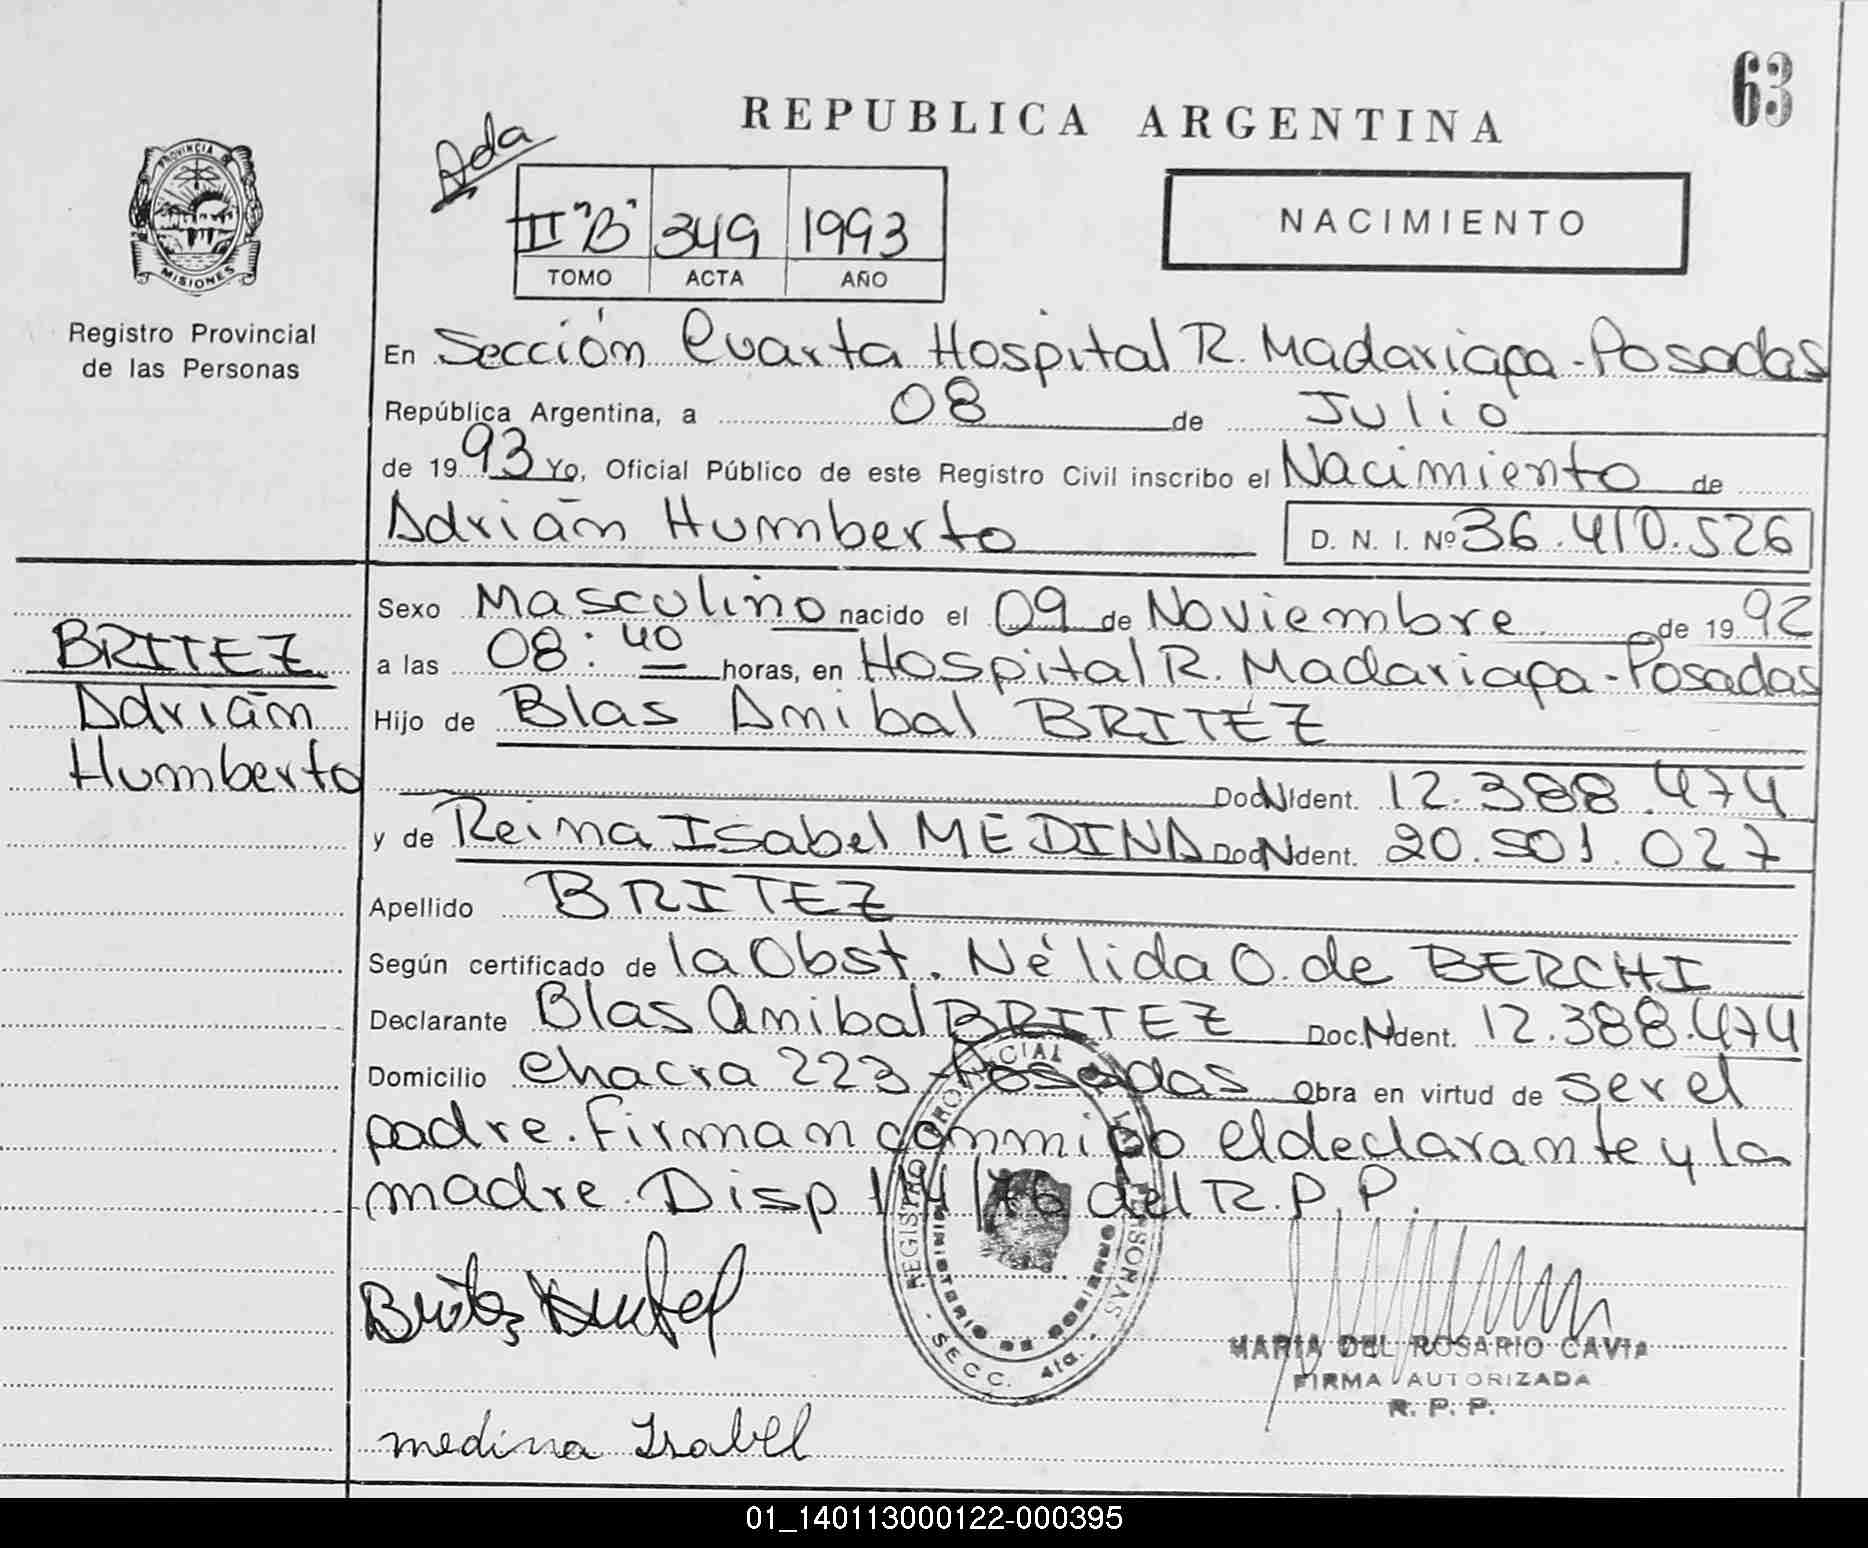 63
REPUBLICA ARGENTINA
Ada
PROVINCIA DE
MISIONES
II "B" 349 1993
TOMO ACTA AÑO
NACIMIENTO
Registro Provincial
de las Personas
En Sección Cuarta Hospital R. Madariaga - Posadas
República Argentina, a 08 de Julio
de 1993 Yo, Oficial Público de este Registro Civil inscribo el Nacimiento de
Adrián Humberto D. N. I. Nº 36.410.526
BRITEZ
Adrián
Humberto
Sexo Masculino nacido el 09 de Noviembre de 1992
a las 08:40 horas, en Hospital R. Madariaga - Posadas
Hijo de Blas Anibal BRITEZ
Doc N Ident. 12.388.474
y de Reina Isabel MEDINA Doc N Ident. 20.501.027
Apellido BRITEZ
Según certificado de la Obst. Nélida O. de BERCHI
Declarante Blas Anibal BRITEZ Doc. N Ident. 12.388.474
Domicilio Chacra 223 - Posadas Obra en virtud de ser el
padre. Firman conmigo el declarante y la
madre. Disp 114/76 del R.P.P.
REGISTRO PROVINCIAL DE LAS PERSONAS
MINISTERIO DE GOBIERNO
SECC. 4ta.
Britez
MARIA DEL ROSARIO CAVIA
FIRMA AUTORIZADA
R. P. P.
medina Isabel
01_140113000122-000395